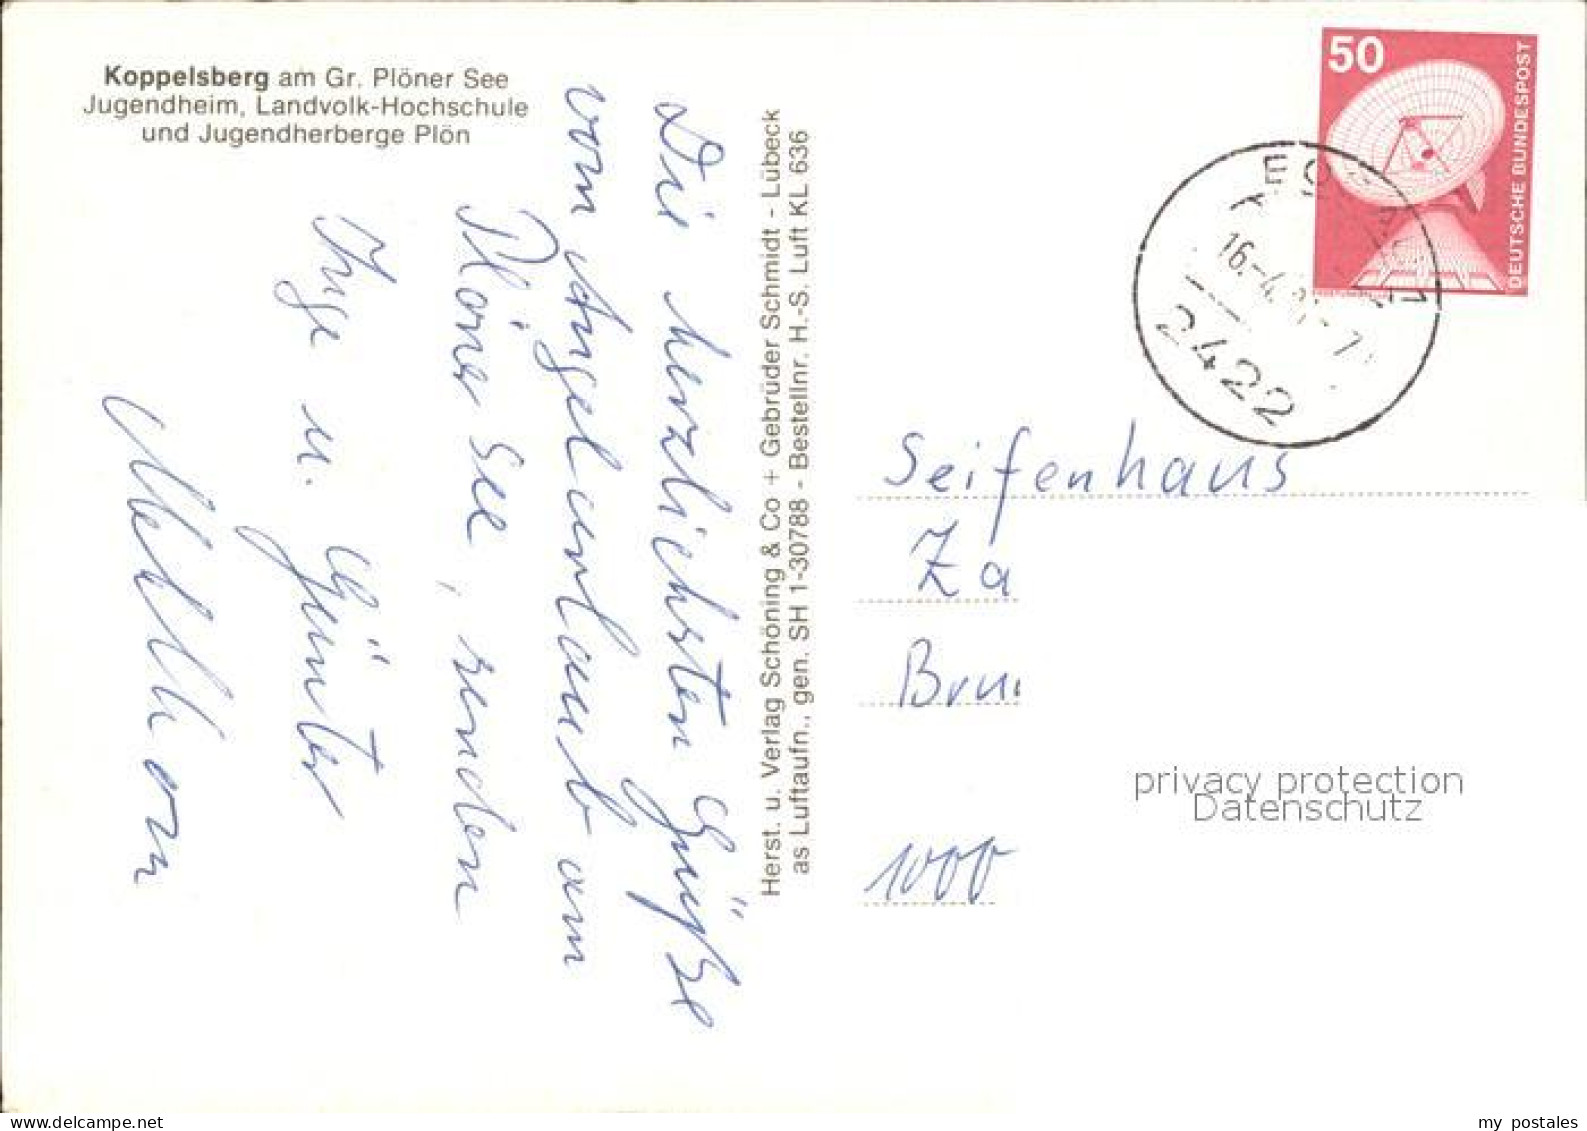 Koppelsberg am Gr. Plöner See
Jugendheim, Landvolk-Hochschule
und Jugendherberge Plön
Die herzlichsten Grüße
vom Angelurlaub am
Plöner See, senden
Inge u. Günter
Herst. u. Verlag Schöning & Co + Gebrüder Schmidt - Lübeck
as Luftaufn., gen. SH 1-30788 - Bestellnr. H.-S. Luft KL 636
50
DEUTSCHE BUNDESPOST
16.-4.
2422
Seifenhaus
Za
Bru
1000
privacy protection
Datenschutz
my postales